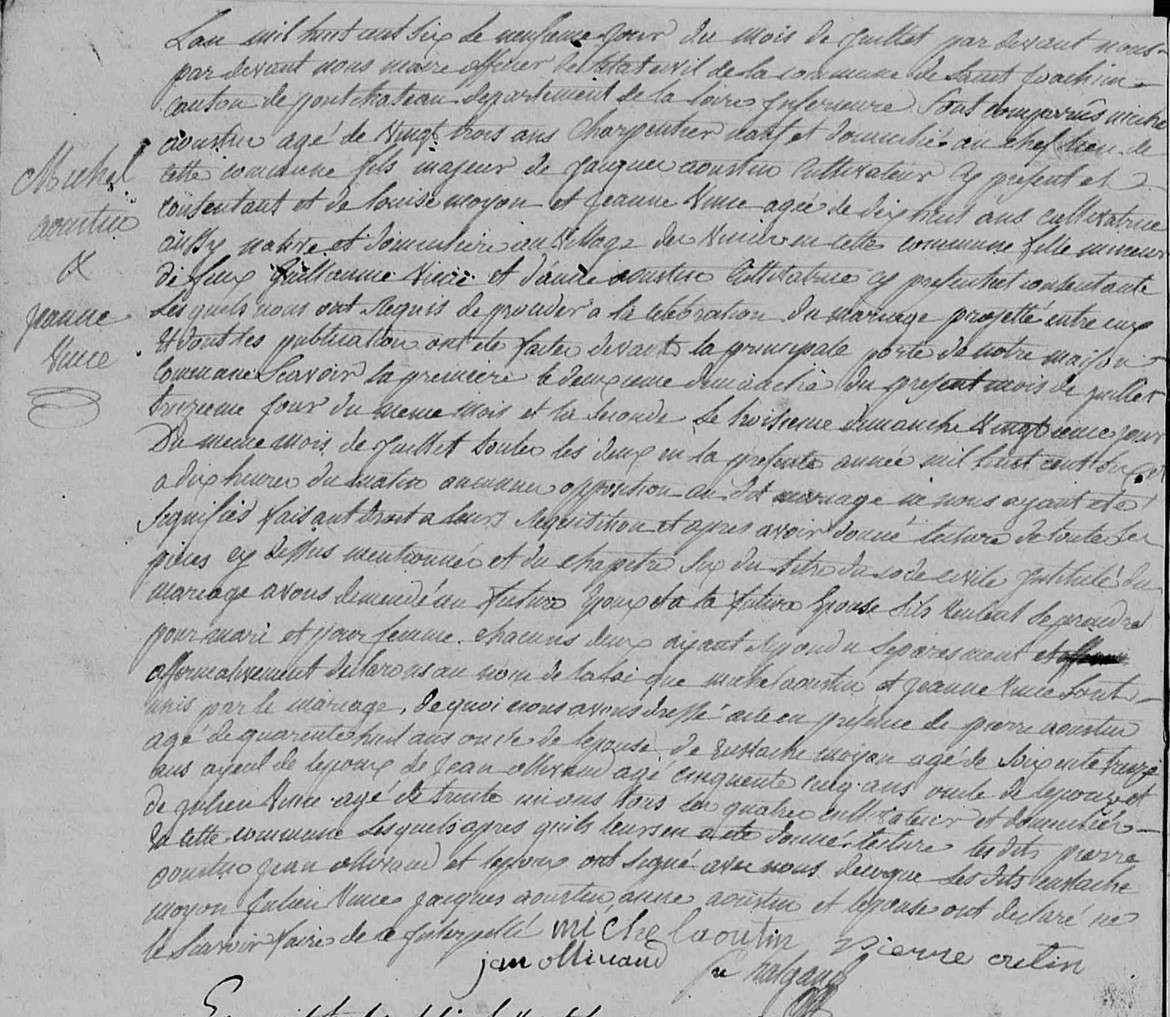 Michel
aoustin
&
jeanne
Vince
L'an mil huit cent six le neufieme jour du mois de juillet par devant nous
par devant nous maire officier de l'Etat civil de la commune de Saint Joachim
canton de pontchateau departement de la loire Inferieure Sont comparus michel
aoustin agé de Vingt trois ans charpentier natif et domicilié au chef lieu de
cette commune fils majeur de jacques aoustin Cultivateur Cy present et
consentant et de louise moyon et jeanne Vince agée de dix huit ans cultivatrice
aussy native et domiciliée au village de en cette commune fille mineure
de feux Guillaume Vince et d'anne aoustin Cultivatrice cy presente et consentante
Lesquels nous ont Requis de proceder a la celebration du mariage projetté entre eux
et dont les publication ont été faites devant la principale porte de notre maison
Commune Scavoir la premiere le deuxieme dimanche du present mois de juillet
treizieme jour du meme mois et la seconde le troisieme dimanche Vingtieme jour
Du meme mois de juillet toutes les deux en la presente année mil huit cent six
a dix heures du matin aucunne opposition au dit mariage ne nous ayant eté
Signifiée faisant droit a leurs Requisition et apres avoir donné lecture de toutes les
pieces cy dessus mentionnée et du chapitre Six du titre du code civile Intitulé du
mariage avons demendé au futur Epoux et a la future Epouse S'ils veulent se prendre
pour mari et pour femme chacuns deux ayant repondu Separement
affirmativement declarons au nom de la loi que michel aoustin et jeanne Vince Sont
unis par le mariage, de quoi nous avons dressé acte en présence de pierre aoustin
agé de quarente huit ans oncle de lepouse de Eustache moyon agé de Soixente treize
ans ayeul de lepoux de Jean ollivaud agé cinquente cinq ans oncle de lepoux et
de julien Vince agé de trente un ans Tous les quatre cultivateur et domiciliés
de cette commune Lesquels apres qu'ils leurs en a eté donné lecture les dits pierre
aoustin jean ollivaud et lepoux ont signé avec nous Les dits eustache
moyon julien Vince jacques aoustin anne aoustin et lepouse ont declaré ne
le Scavoir faire de ce Interpellé michel aoutin pierre outin
jan ollivaud